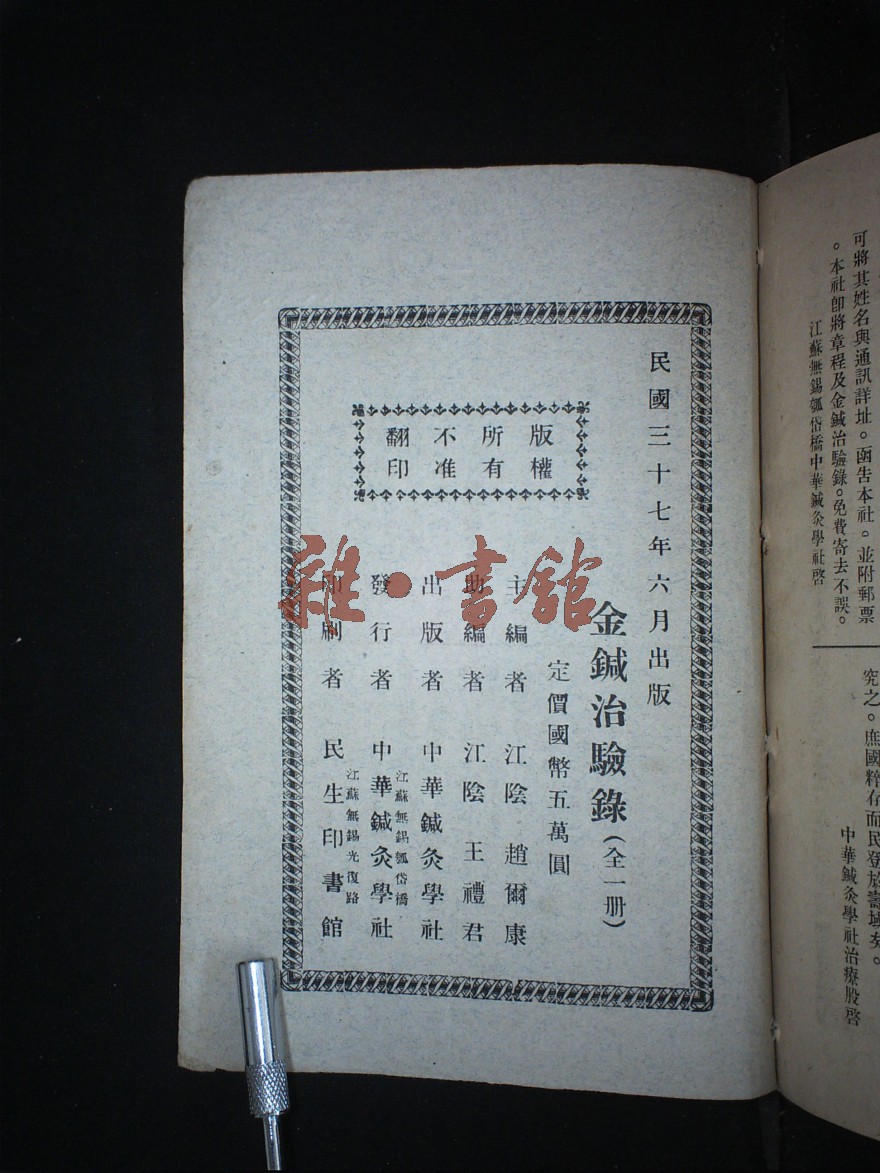 可將其姓名與通訊詳址。函告本社。並附郵票
。本社卽將章程及金鍼治驗錄。免費寄去不誤。
江蘇無錫瓠岱橋中華鍼灸學社啓
究之。庶國粹存而民登於壽域矣。
中華鍼灸學社治療股啓
民國三十七年六月出版
金鍼治驗錄(全一册)
定價國幣五萬圓
版權
所有
不准
翻印
主編者 江陰 趙爾康
助編者 江陰 王禮君
出版者 中華鍼灸學社
江蘇無錫瓠岱橋
發行者 中華鍼灸學社
江蘇無錫光復路
印刷者 民生印書館
雜·書館